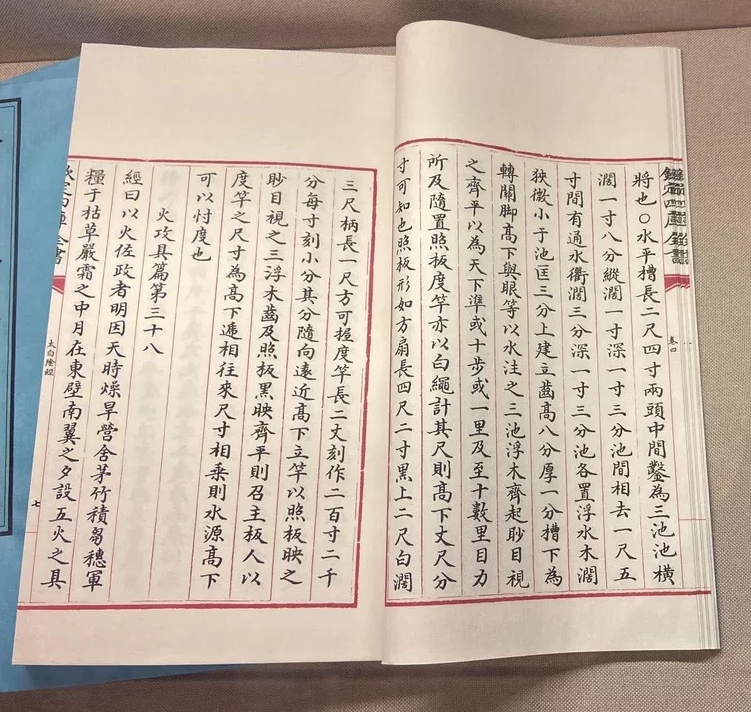 欽定四庫全書
卷四
將也○水平槽長二尺四寸兩頭中間鑿為三池池橫
濶一寸八分縱濶一寸深一寸三分池間相去一尺五
寸間有通水衝濶三分深一寸三分池各置浮水木濶
狹微小于池匡三分上建立齒髙八分厚一分槽下為
轉關脚髙下與眼等以水注之三池浮木齊起眇目視
之齊平以為天下準或十步或一里及至十數里目力
所及隨置照板度竿亦以白繩計其尺則髙下丈尺分
寸可知也照板形如方扇長四尺二寸黒上二尺白濶
三尺柄長一尺方可握度竿長二丈刻作二百寸二千
分每寸刻小分其分隨向逺近髙下立竿以照板映之
眇目視之三浮木齒及照板黒映齊平則召主板人以
度竿之尺寸為髙下遞相往來尺寸相乘則水源髙下
可以忖度也
火攻具篇第三十八
經曰以火佐政者明因天時燥旱營舍茅竹積芻穗軍
糧于枯草嚴霜之中月在東壁南翼之夕設五火之具
欽定四庫全書
太白陰經
七